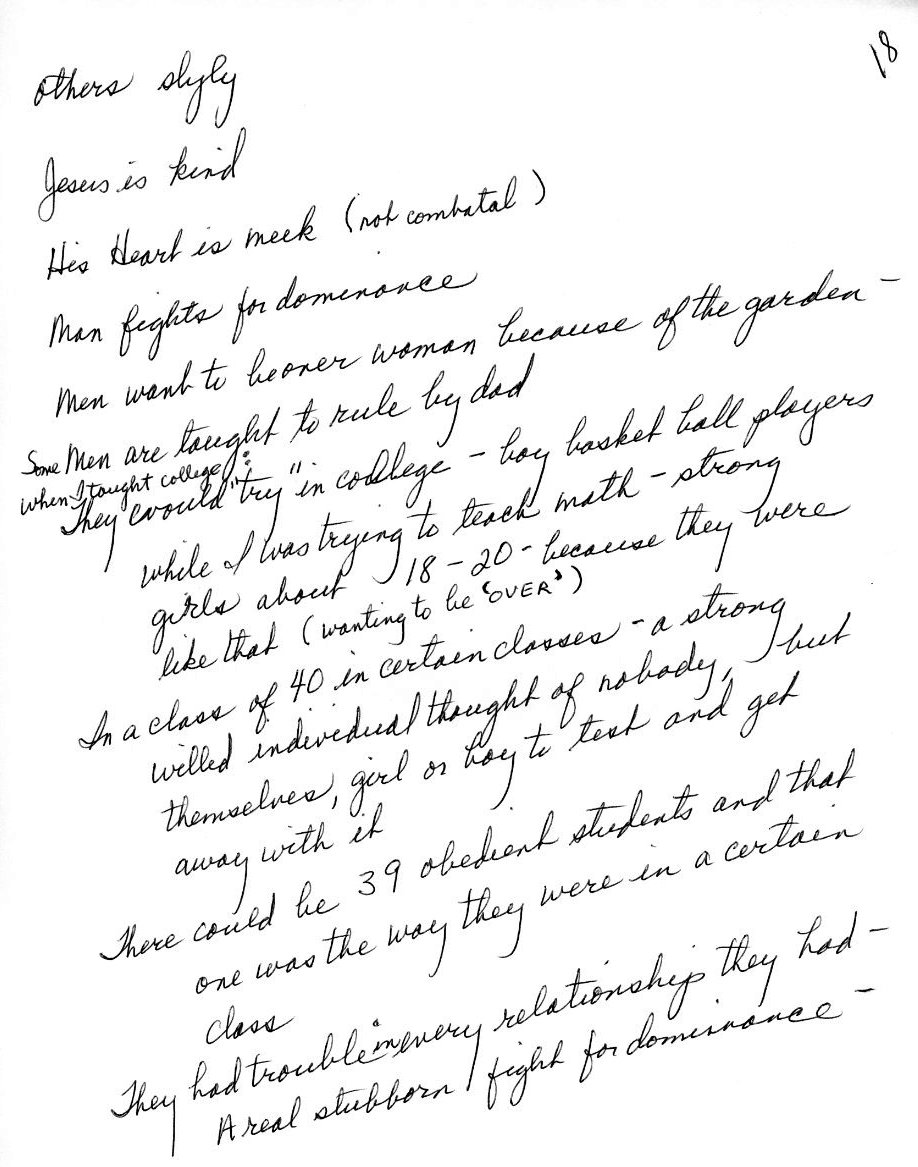 18
others slyly
Jesus is kind
His Heart is meek (not combatal)
Man fights for dominance
Men want to be over woman because of the garden -
Some Men are taught to rule by dad
when I taught college:
They would "try" in college - boy basket ball players
while I was trying to teach math - strong
girls about 18-20 - because they were
like that (wanting to be 'OVER')
In a class of 40 in certain classes - a strong
willed individual thought of nobody, but
themselves, girl or boy to test and get
away with it
There could be 39 obedient students and that
one was the way they were in a certain
class
They had trouble in every relationship they had -
A real stubborn fight for dominance -